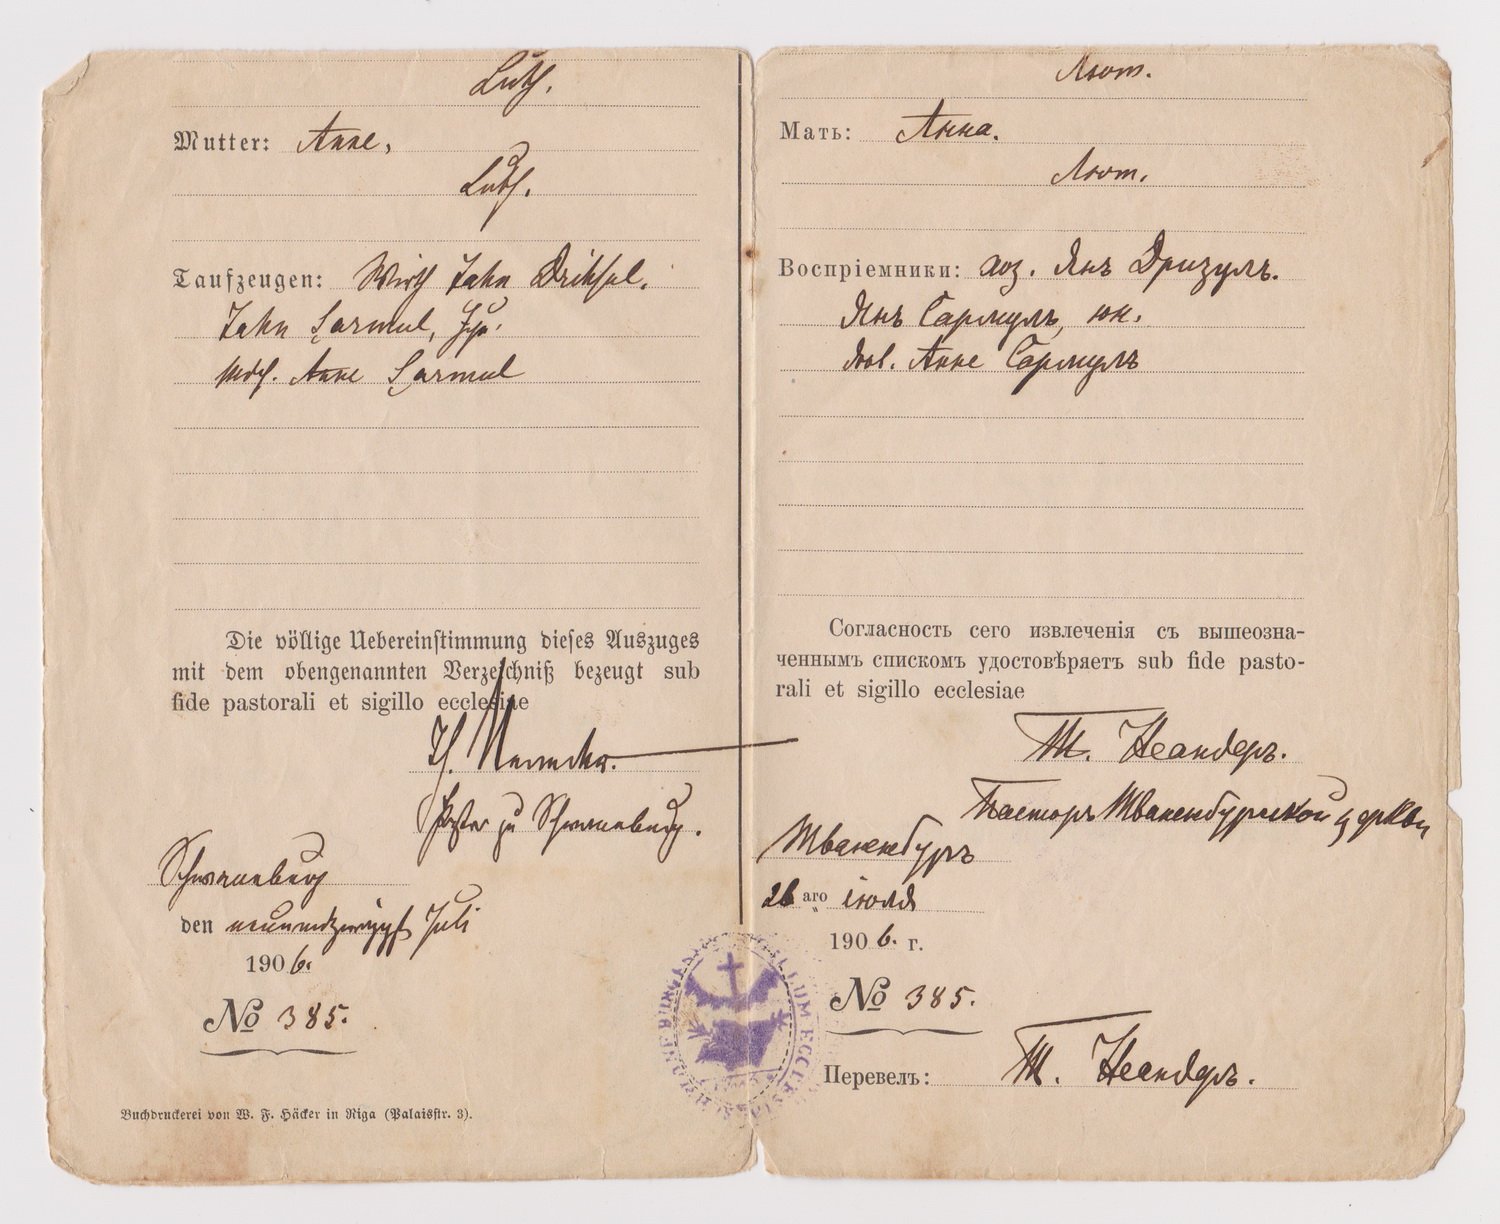 Luth.
Mutter: Anne,
Luth.
Taufzeugen: Wirth Jahn Drihsul.
Jahn Sarmul, Jgs.
Mdch. Anne Sarmul
Die völlige Uebereinstimmung dieses Auszuges
mit dem obengenannten Verzeichniß bezeugt sub
fide pastorali et sigillo ecclesiae
Th. Neander.
Pastor zu Schwaneburg.
Schwaneburg
den Juli
1906.
No 385.
Buchdruckerei von W. F. Häcker in Riga (Palaisstr. 3).
Лют.
Мать: Анна.
Лют.
Воспріемники: хоз. Янъ Дризулъ.
Янъ Сармулъ, юн.
Анне Сармулъ
Согласность сего извлеченія съ вышеозна-
ченнымъ спискомъ удостовѣряетъ sub fide pasto-
rali et sigillo ecclesiae
Т. Неандеръ.
Пасторъ Шваненбургской церкви
Шваненбургъ
26 аго іюля
1906. г.
No 385.
Перевелъ: Т. Неандеръ.